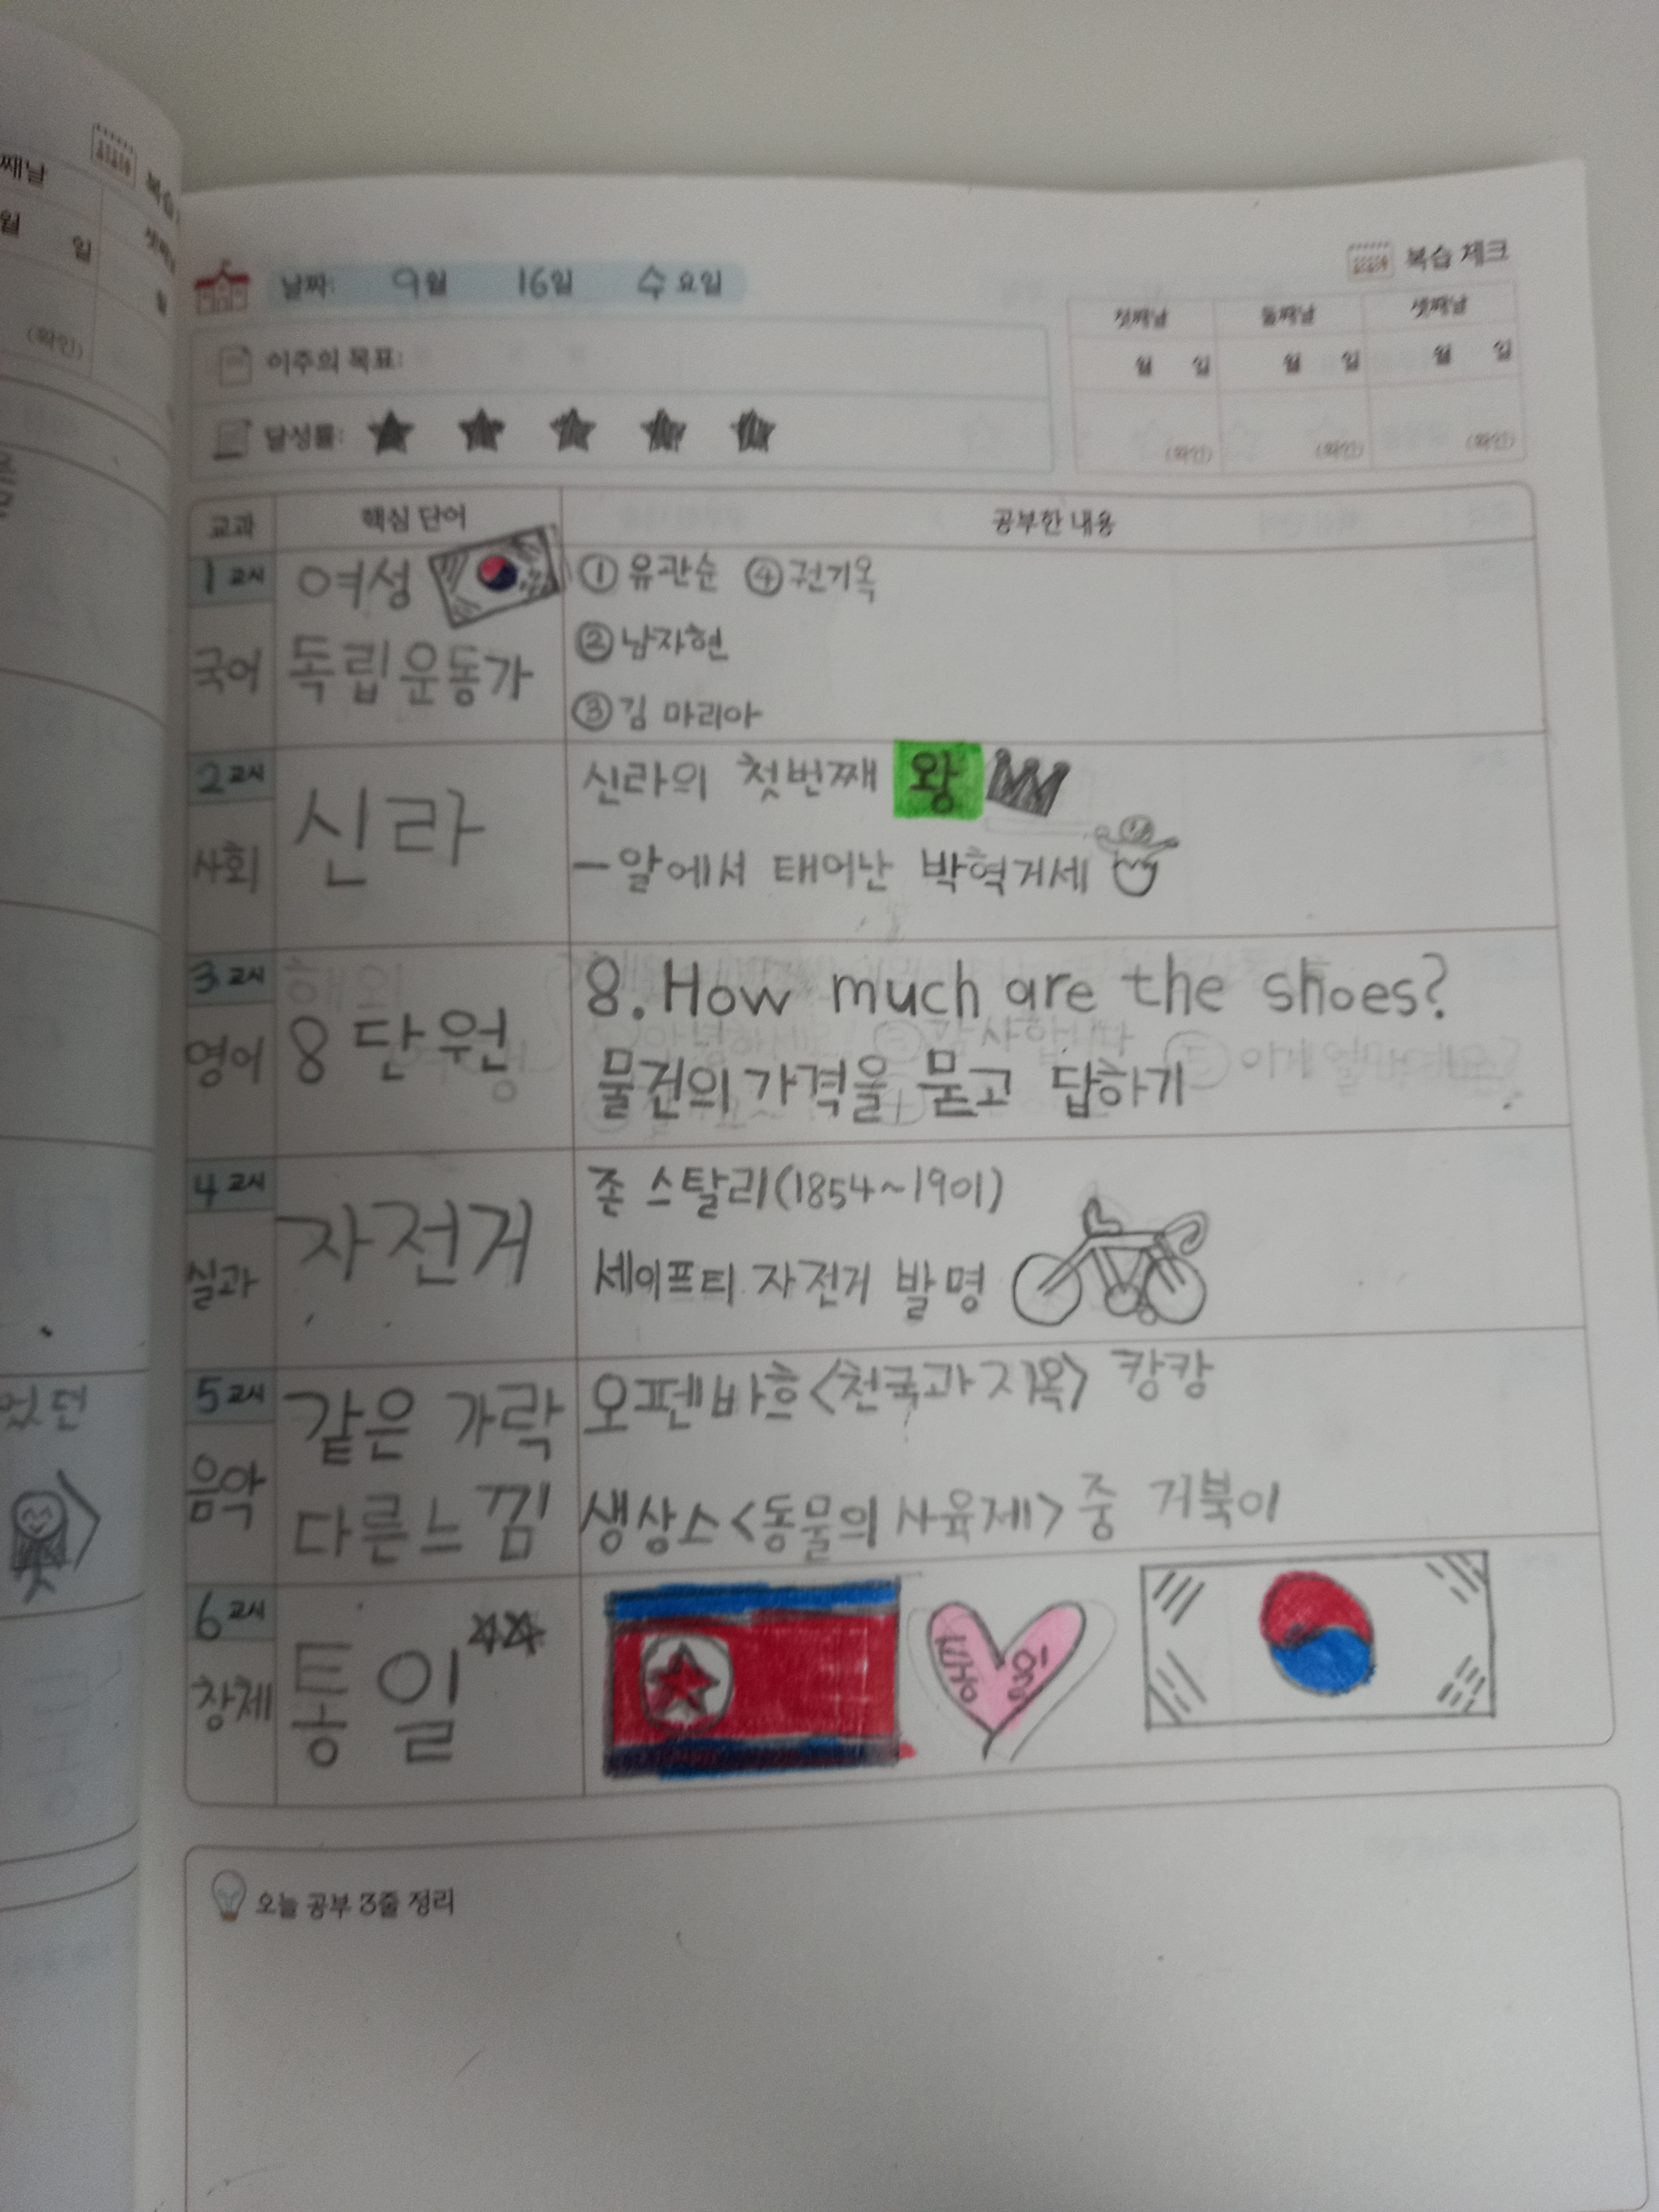 째날
월 일
(확인)
복습
날짜: 9월 16일 수요일
복습 체크
이주의 목표:
달성률:
첫째날 둘째날 셋째날
월 일 월 일 월 일
(확인) (확인) (확인)
교과 핵심 단어 공부한 내용
1교시
국어
여성
독립운동가
① 유관순 ④ 권기옥
② 남자현
③ 김 마리아
2교시
사회
신라
신라의 첫번째 왕
- 알에서 태어난 박혁거세
3교시
영어
8 단원
8. How much are the shoes?
물건의 가격을 묻고 답하기
4교시
실과
자전거
존 스탈리(1854~1901)
세이프티 자전거 발명
5교시
음악
같은 가락
다른 느낌
오펜바흐<천국과 지옥> 캉캉
생상소<동물의 사육제> 중 거북이
6교시
창체
통일
었던
오늘 공부 3줄 정리